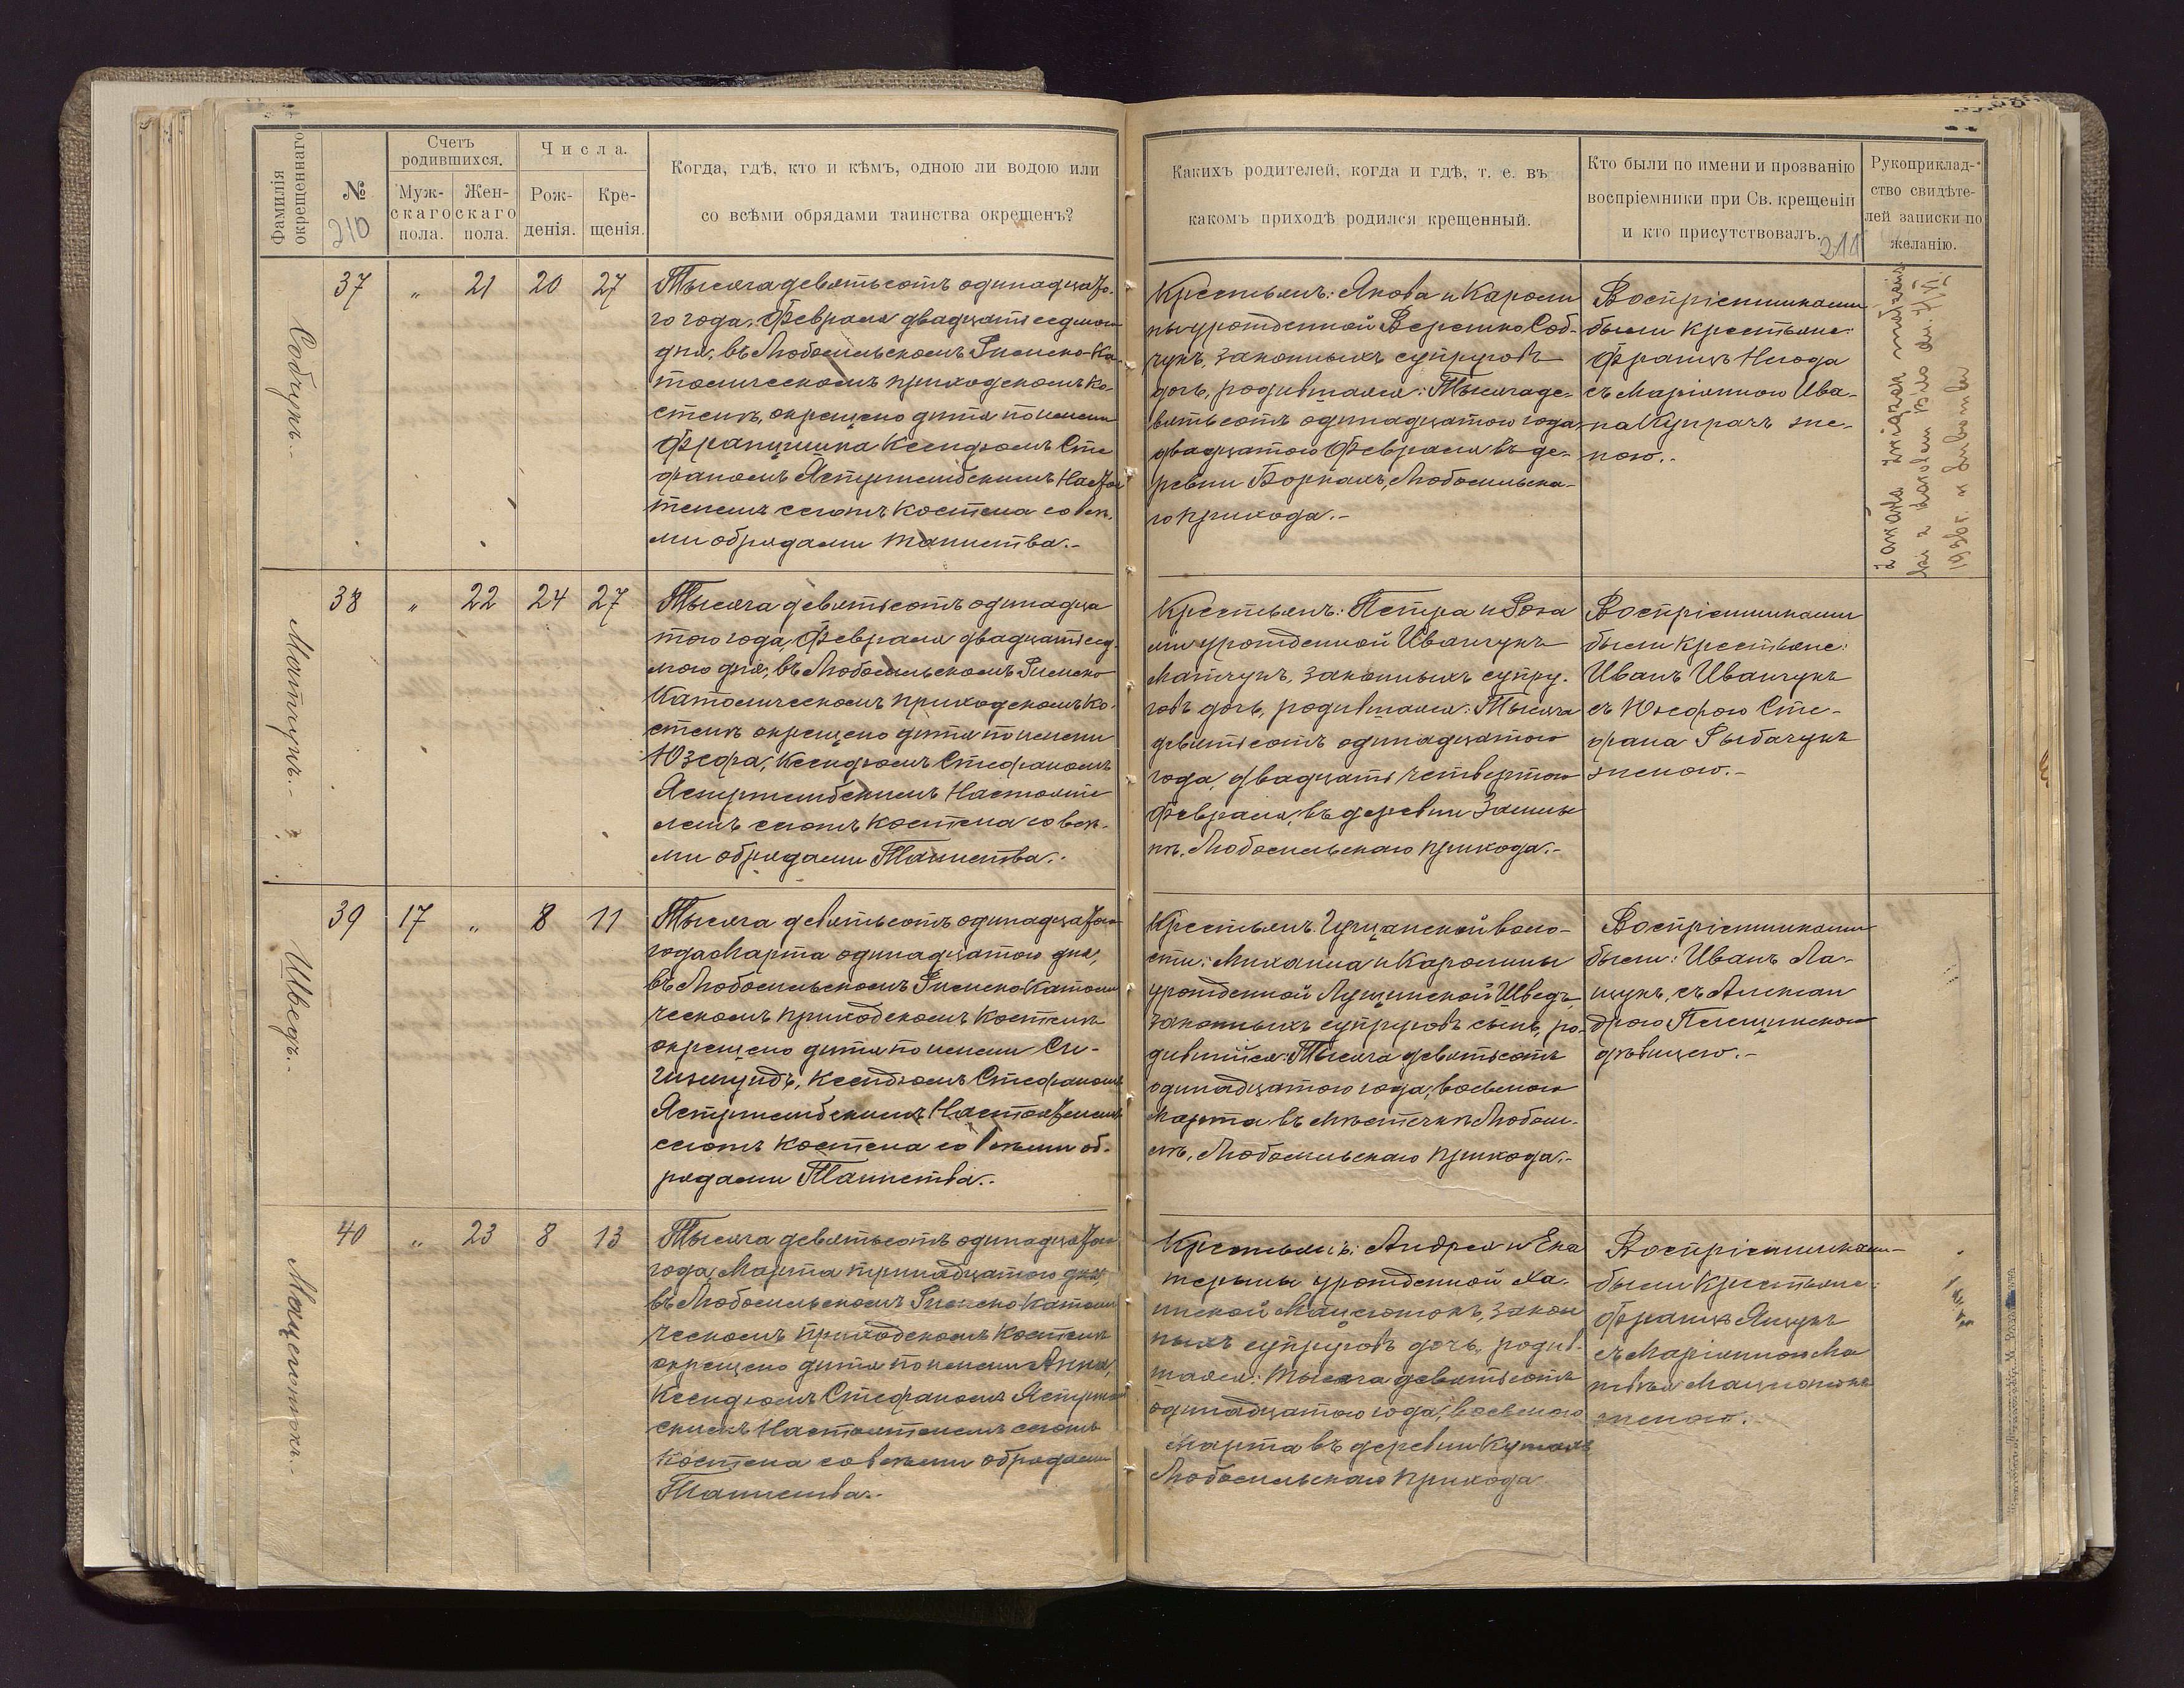 Фамилія окрещеннаго
№
210
Счетъ родившихся.
Муж-
скаго
пола.
Жен-
скаго
пола.
Числа.
Рож-
денія.
Кре-
щенія.
Когда, гдѣ, кто и кѣмъ, одною ли водою или
со всѣми обрядами таинства окрещенъ?
Какихъ родителей, когда и гдѣ, т. е. въ
какомъ приходѣ родился крещенный.
Кто были по имени и прозванію
воспріемники при Св. крещеніи
и кто присутствовалъ.
211
Рукоприклад-
ство свидѣте-
лей записки по
желанію.
Собчукъ.
37 „ 21 20 27
Тысяча девятьсотъ одинадцато-
го года, Февраля двадцать седмого
дня, въ Любомльскомъ Римско-Ка-
толическомъ приходскомъ Ко-
стелѣ, окрещено дитя по имени
Францишка Ксендзомъ Сте
фаномъ Ястржембскимъ Настоя
телемъ сегожъ Костела со всѣ-
ми обрядами таинства.-
Крестьянъ: Якова и Кароли
ны урожденной Веремко Соб-
чукъ, законныхъ супруговъ
дочь, родившаяся: Тысяча де-
вятьсотъ одинадцатого года
двадцатого Февраля въ де-
ревни Боркахъ, Любомльска-
го прихода.-
Воспріемниками
были крестьяне:
Францъ Нигода
съ Маріянною Ива-
на Купрачъ же-
ною.-
1936 r.
38 „ 22 24 27
Матчукъ.
Тысяча девятьсотъ одинадца
того года, Февраля двадцать сед-
мого дня, въ Любомльскомъ Римско
Католическомъ приходскомъ Ко-
стелѣ окрещено дитя по имени
Юзефа, Ксендзомъ Стефаномъ
Ястржембскимъ Настояте
лемъ сегожъ Костела со всѣ-
ми обрядами Таинства.-
Крестьянъ: Петра и Роза
ліи урожденной Иванчукъ
Матчукъ, законныхъ супру-
говъ дочь, родившаяся: Тысяча
девятьсотъ одинадцатого
года, двадцать четвертого
Февраля, въ деревни
Любомльскаго прихода.-
Воспріемниками
были крестьяне:
Иванъ Иванчукъ
съ Юзефою Сте-
фана Рыбачукъ
женою.-
39 17 „ 8 11
Шведъ.
Тысяча девятьсотъ одинадцатого
года Марта одинадцатого дня,
въ Любомльскомъ Римско Католи
ческомъ приходскомъ Костелѣ
окрещено дитя по имени Си-
гизмундъ, Ксендзомъ Стефаномъ
Ястржембскимъ Настоятелемъ
сегожъ Костела со всѣми об-
рядами Таинства.-
Крестьянъ Гущанской воло-
сти: Михаила и Каролины
урожденной Лущинской Шведъ,
законныхъ супруговъ сынъ, ро-
дившійся: Тысяча девятьсотъ
одинадцатого года, восьмого
Марта въ мѣстечкѣ Любом-
лѣ, Любомльскаго прихода.-
Воспріемниками
были: Иванъ
съ Алексан
дрою
дѣвицею.-
40 „ 23 8 13
Тысяча девятьсотъ одинадцатого
года, Марта тринадцатого дня
въ Любомльскомъ Римско Католи
ческомъ приходскомъ Костелѣ
окрещено дитя по имени Анна,
Ксендзомъ Стефаномъ Ястржемб
скимъ Настоятелемъ сегожъ
Костела со всѣми обрядами
Таинства.-
Крестьянъ: Андрея и Ека
терины урожденной
закон
ныхъ супруговъ дочь, родив-
шаяся: Тысяча девятьсотъ
одинадцатого года, восьмого
Марта въ деревни
Любомльскаго прихода
Воспріемниками
были Крестьяне:
Францъ Ящукъ
съ Маріянною Ма
твѣя
женою.-